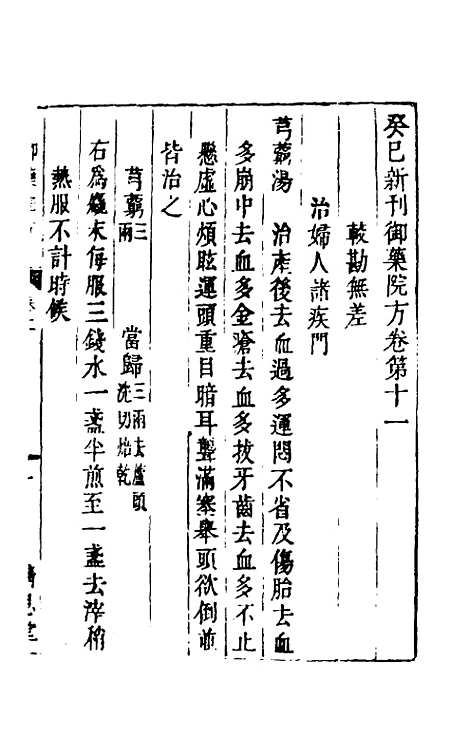 癸巳新刊御藥院方卷第十一
較勘無差
治婦人諸疾門
芎藭湯　治產後去血過多運悶不省及傷胎去血
多崩中去血多金瘡去血多拔牙齒去血多不止
懸虛心煩眩運頭重目暗耳聾滿塞舉頭欲倒並
皆治之
芎藭三兩　當歸三兩去蘆頭洗切焙乾
右為麄末每服三錢水一盞半煎至一盞去滓稍
熱服不計時候